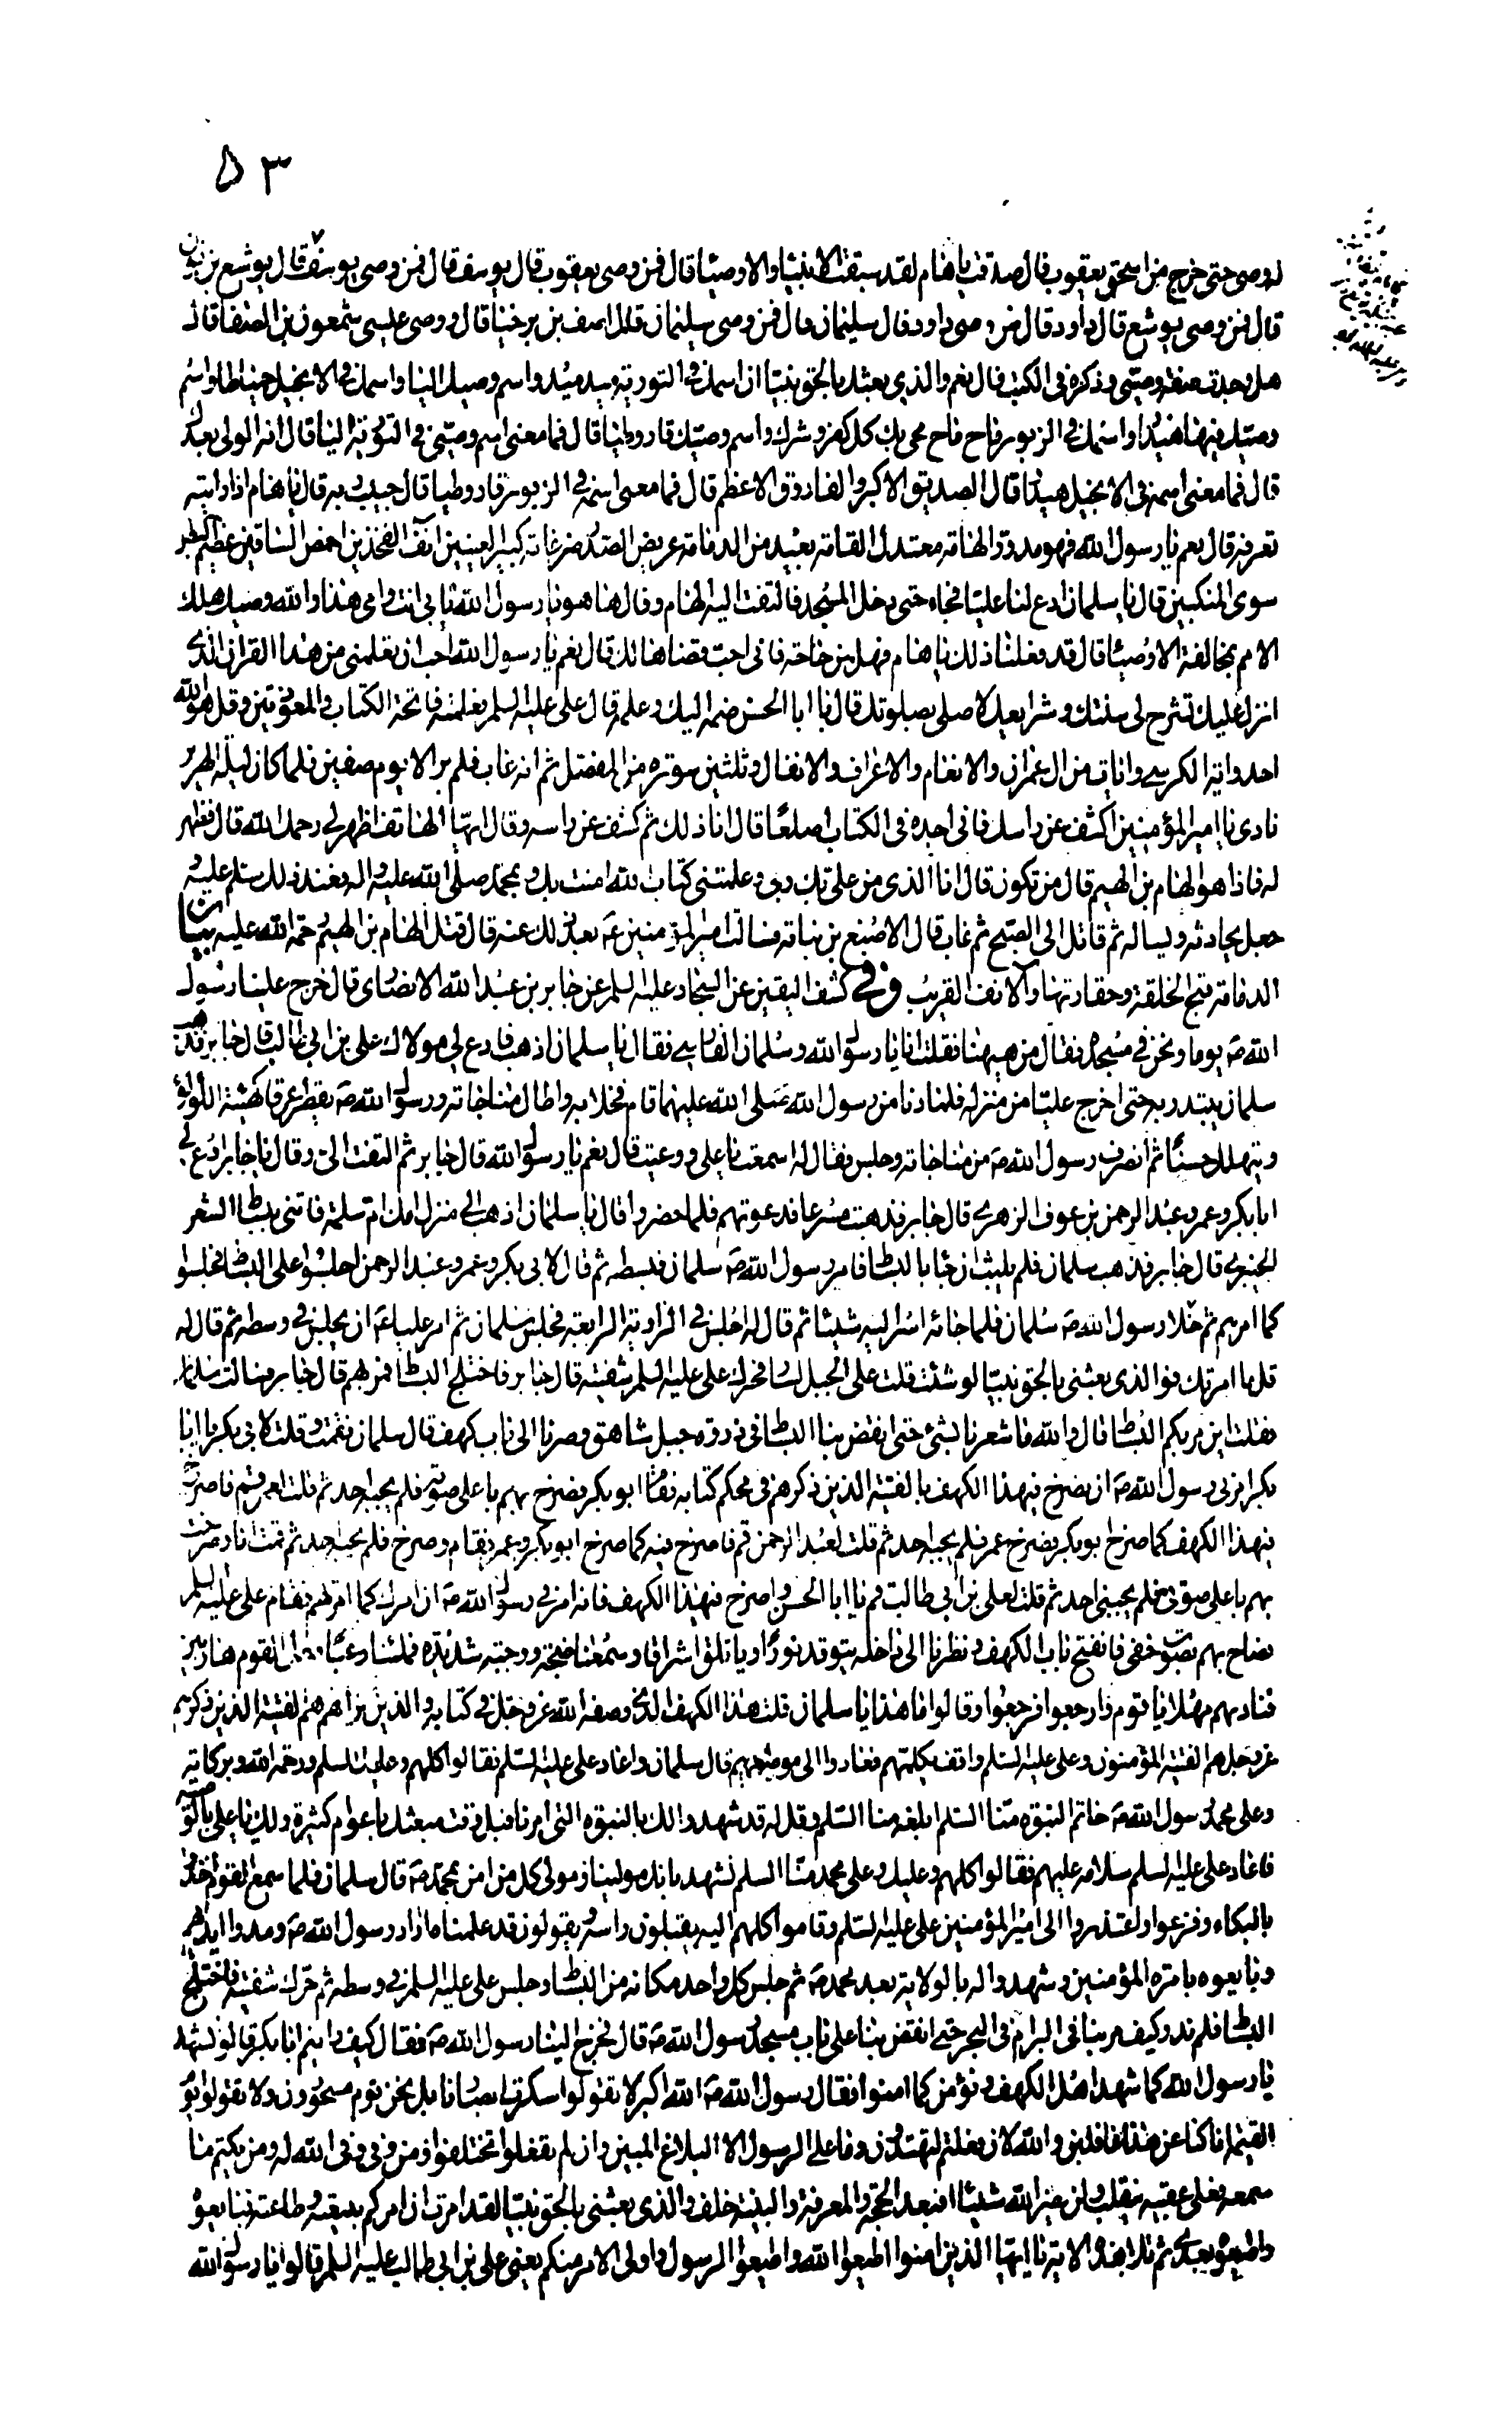 ٥٣
له وصى حتى خرج من اسحق يعقوب قال صدقت يا هام لقد سبقت الانبياء والاوصياء قال فمن وصى يعقوب قال يوسف قال فمن وصى يوسف قال يوشع بن نون
قال فمن وصى يوشع قال داود قال فمن وصى داود قال سليمان قال فمن وصى سليمان قال اصف بن برخيا قال ووصى عيسى شمعون بن الصفا قال
هل نجد صفة وصيى وذكره فى الكتب قال نعم والذي بعثك بالحق نبيا ان اسمك فى التورية ميد ميد واسم وصيك اليا واسمك فى الانجيل حمياطا واسم
وصيك فيها هيدار واسمك فى الزبور ماح ماح محى بك كل كفر وشرك واسم وصيك قاروطيا قال فما معنى اسم وصيى فى التورية اليا قال انه الولى بعدك
قال فما معنى اسمه فى الانجيل هيدار قال الصديق الاكبر والفاروق الاعظم قال فما معنى اسمه فى الزبور قاروطيا قال حبيب ربه قال يا هام اذا رايته
تعرفه قال نعم يا رسول الله فهو مدور الهامة معتدل القامة بعيد من الدمامة عريض الصدر ضرغامة كبير العينين انف الفخذين اخمص الساقين عظيم البطن
سوى المنكبين قال يا سلمان ادع لنا عليا فجاء حتى دخل المسجد فالتفت اليه الهام وقال ها هو يا رسول الله بابى انت وامى هذا والله وصيك هلك
الامم بمخالفة الاوصياء قال قد فعلنا ذلك يا هام فهل من حاجة فانى احب قضاها لك قال نعم يا رسول الله احب ان تعلمنى من هذا القران الذى
انزل عليك تشرح لى سنتك وشرايعك لاصلى بصلوتك قال يا ابا الحسن ضمه اليك وعلمه قال على عليه السلم فعلمته فاتحة الكتاب والمعوذتين وقل هو الله
احد واية الكرسى وايات من ال عمران والانعام والاعراف والانفال وثلثين سورة من المفصل ثم انه غاب فلم ير الا يوم صفين فلما كان ليلة الهرير
نادى يا امير المؤمنين اكشف عن راسك فانى اجده فى الكتاب اصلعا قال انا ذلك ثم كشف عن راسه وقال ايها الهاتف اظهر لى رحمك الله قال فظهر
له فاذا هو الهام بن الهيم قال من تكون قال انا الذى من على بك ربى وعلمتنى كتاب الله امنت بك وبمحمد صلى الله عليه واله فعند ذلك سلم عليه
جعل يحادثه ويساله ثم قاتل الى الصبح ثم غاب قال الاصبغ بن نباته فسالت امير المؤمنين ع بعد ذلك عنه قال قتل الهام بن الهيم رحمة الله عليه بيان
الدمامة قبح الخلقة وحقارتها والانف القريب وفى كشف اليقين عن السجاد عليه السلم عن جابر بن عبد الله الانصارى قال خرج علينا رسول
الله ص يوما ونحن فى مسجده فقال من هيهنا فقلت انا يا رسول الله وسلمان الفارسى فقال يا سلمان اذهب فادع لى مولاك على بن ابى طالب قال جابر فذهب
سلمان يبتدر به حتى اخرج عليا من منزله فلما دنا من رسول الله صلى الله عليهما قام فخلا به واطال مناجاته ورسول الله ص يقطر عرقا كهيئة اللؤلؤ
ويتهلل حسنا ثم انصرف رسول الله ص من مناجاته وجلس فقال له اسمعت يا على ووعيت قال نعم يا رسول الله قال جابر ثم التفت الى وقال يا جابر ادع لى
ابا بكر وعمر وعبد الرحمن بن عوف الزهرى قال جابر فذهبت مسرعا فدعوتهم فلما حضروا قال يا سلمان اذهب الى منزل امك ام سلمة فاتنى ببساط الشعر
الخيبرى قال جابر فذهب سلمان فلم يلبث ان جاء بالبساط فامر رسول الله ص سلمان فبسطه ثم قال لابى بكر وعمر وعبد الرحمن اجلسوا على البساط فجلسوا
كما امرهم ثم خلا رسول الله ص سلمان فلما جائه اسر اليه شيئا ثم قال له اجلس فى الزاوية الرابعة فجلس سلمان ثم امر عليا ع ان يجلس فى وسطه ثم قال له
قل ما امرتك فو الذى بعثنى بالحق نبيا لو شئت قلت على الجبل لسار فحرك على عليه السلم شفتيه قال جابر فاختلج البساط فمر بهم قال جابر فسالت سلمان
فقلت اين مر بكم البساط قال والله ما شعرنا بشئ حتى انقض بنا البساط فى ذروة جبل شاهق وصرنا الى باب كهف قال سلمان فقمت وقلت لابى بكر يا ابا
بكر امرنى رسول الله ص ان يصرخ فى هذا الكهف بالفتية الذين ذكرهم فى محكم كتابه فقام ابو بكر فصرخ بهم باعلى صوته فلم يجبه احد ثم قلت لعمر قم فاصرخ
فى هذا الكهف كما صرخ ابو بكر فصرخ عمر فلم يجبه احد ثم قلت لعبد الرحمن قم فاصرخ فيه كما صرخ ابو بكر وعمر فقام وصرخ فلم يجبه احد ثم قمت انا وصرخت
بهم باعلى صوتى فلم يجبنى احد ثم قلت لعلى بن ابى طالب قم يا ابا الحسن واصرخ فى هذا الكهف فانه امرنى رسول الله ص ان امرك كما امرتهم فقام على عليه السلم
فصاح بهم بصوت خفى فانفتح باب الكهف ونظرنا الى داخله يتوقد نورا ويأتلق اشراقا وسمعنا ضجة ووجبة شديدة فملئنا رعبا القوم هاربين
فناديهم مهلا يا قوم وارجعوا فرجعوا وقالوا ما هذا يا سلمان قلت هذا الكهف الذى وصفه الله عز وجل فى كتابه والذين نراهم هم الفتية الذين ذكرهم
عز وجل هم الفتية المؤمنون وعلى عليه السلم واقف يكلمهم فعادوا الى موضعهم قال سلمان واعاد على عليه السلم فقالوا كلهم وعليك السلم ورحمة الله وبركاته
وعلى محمد رسول الله ص خاتم النبوة منا السلم ابلغه منا السلم وقل له قد شهدوا لك بالنبوة التى امرنا قبل وقت مبعثك باعوام كثيرة ولك يا على بالوصية
فاعاد على عليه السلم سلامه عليهم فقالوا كلهم وعليك وعلى محمد منا السلم نشهد بانك مولينا ومولى كل من امن بمحمد ص قال سلمان فلما سمع القوم اخذوا
بالبكاء وفزعوا واعتذروا الى امير المؤمنين على عليه السلم وقاموا كلهم اليه يقبلون راسه ويقولون قد علمنا ما اراد رسول الله ص ومدوا ايديهم
وبايعوه بامرة المؤمنين وشهدوا له بالولاية بعد محمد ص ثم جلس كل واحد مكانه من البساط وجلس على عليه السلم فى وسطه ثم حرك شفتيه فاختلج
البساط فلم ندر كيف مر بنا فى البر ام فى البحر حتى انقض بنا على باب مسجد رسول الله ص قال فخرج الينا رسول الله ص فقال كيف رايتم ابا بكر قالوا نشهد
يا رسول الله كما شهد اهل الكهف ونؤمن كما امنوا فقال رسول الله ص الله اكبر لا تقولوا سكرت ابصارنا بل نحن قوم مسحورون ولا تقولوا يوم
القيمة انا كنا عن هذا غافلين والله لان فعلتم لتهتدون وما على الرسول الا البلاغ المبين وان لم تفعلوا تختلفوا ومن وفى وفى الله له ومن يكتم منا
سمعه فعلى عقبيه ينقلب ولن يضر الله شيئا افبعد الحجة والمعرفة والبينة خلف والذى بعثنى بالحق نبيا لقد امرت ان امركم ببيعته وطاعته فبايعوه
واطيعوه بعدى ثم تلا هذه الاية يا ايها الذين امنوا اطيعوا الله واطيعوا الرسول واولى الامر منكم يعنى على بن ابى طالب عليه السلم قالوا يا رسول الله